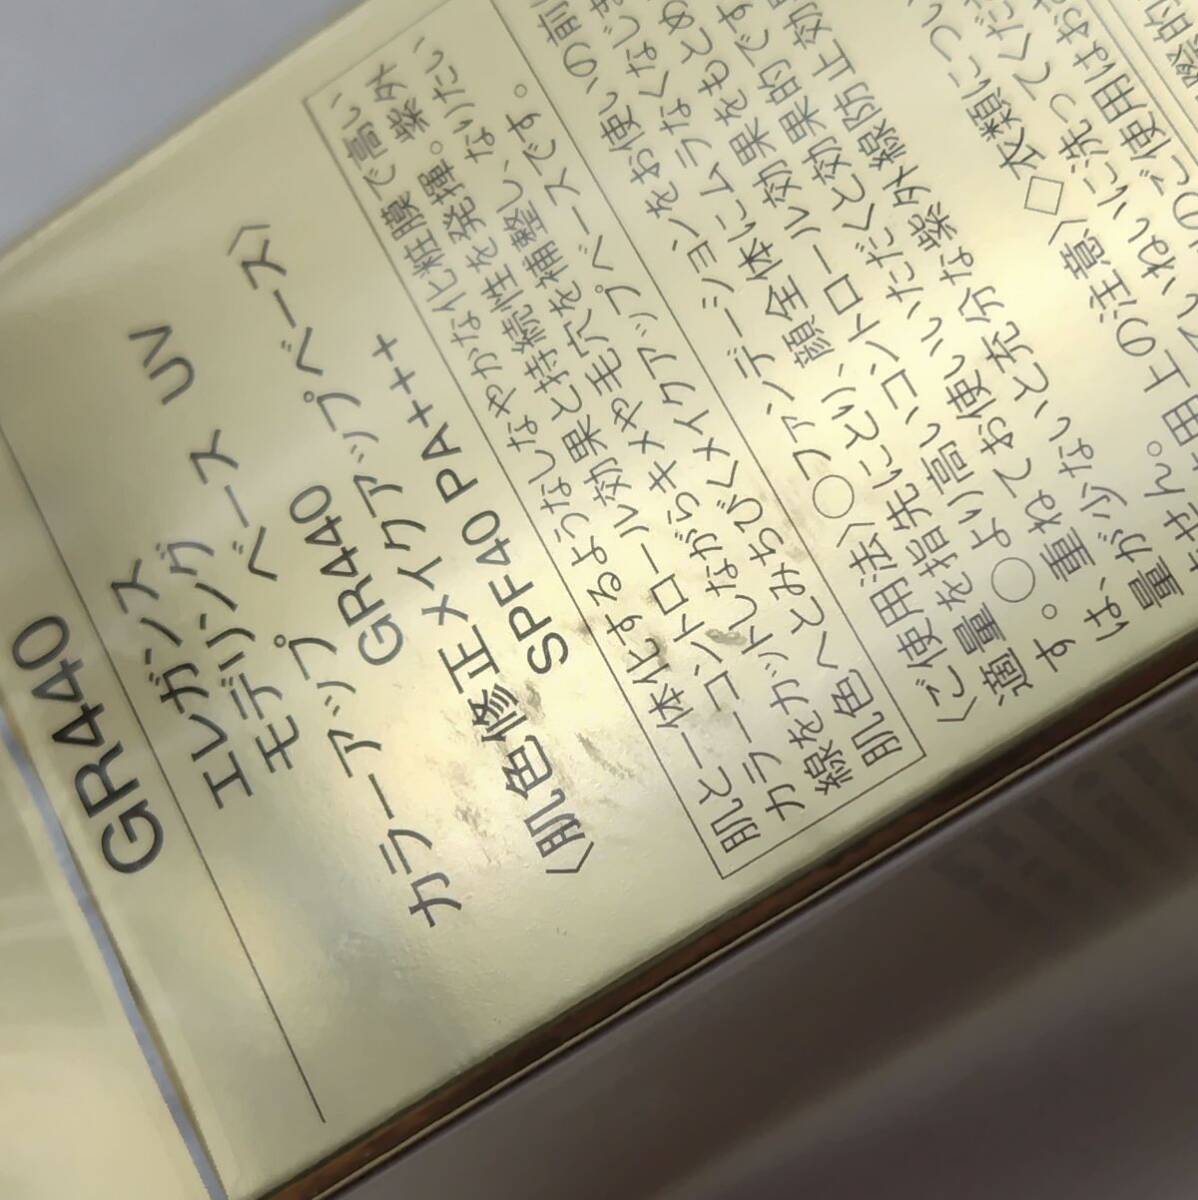 GR440
エレガンス
モデリング
アップ ベース UV
カラーアップ GR440
〈肌色修正メイクアップベース〉
SPF40 PA+++
肌と一体化するようなしなやかな化粧膜で高い
カラーコントロール効果と持続性を発揮。紫外
線をカットしながらキメや毛穴を補整し、なりたい
肌色へとみちびくメイクアップベースです。
〈ご使用法〉○ファンデーションをお使いの前
適量を指先にとり、顔全体にムラなくなじ
す。○より高いコントロール効果をもとめ
は、重ねてお使いいただくと効果的です
量が少ないと充分な紫外線防止効
ません。
用上の注意〉◇衣類につい
ねいに洗ってくだ
のご使用はお